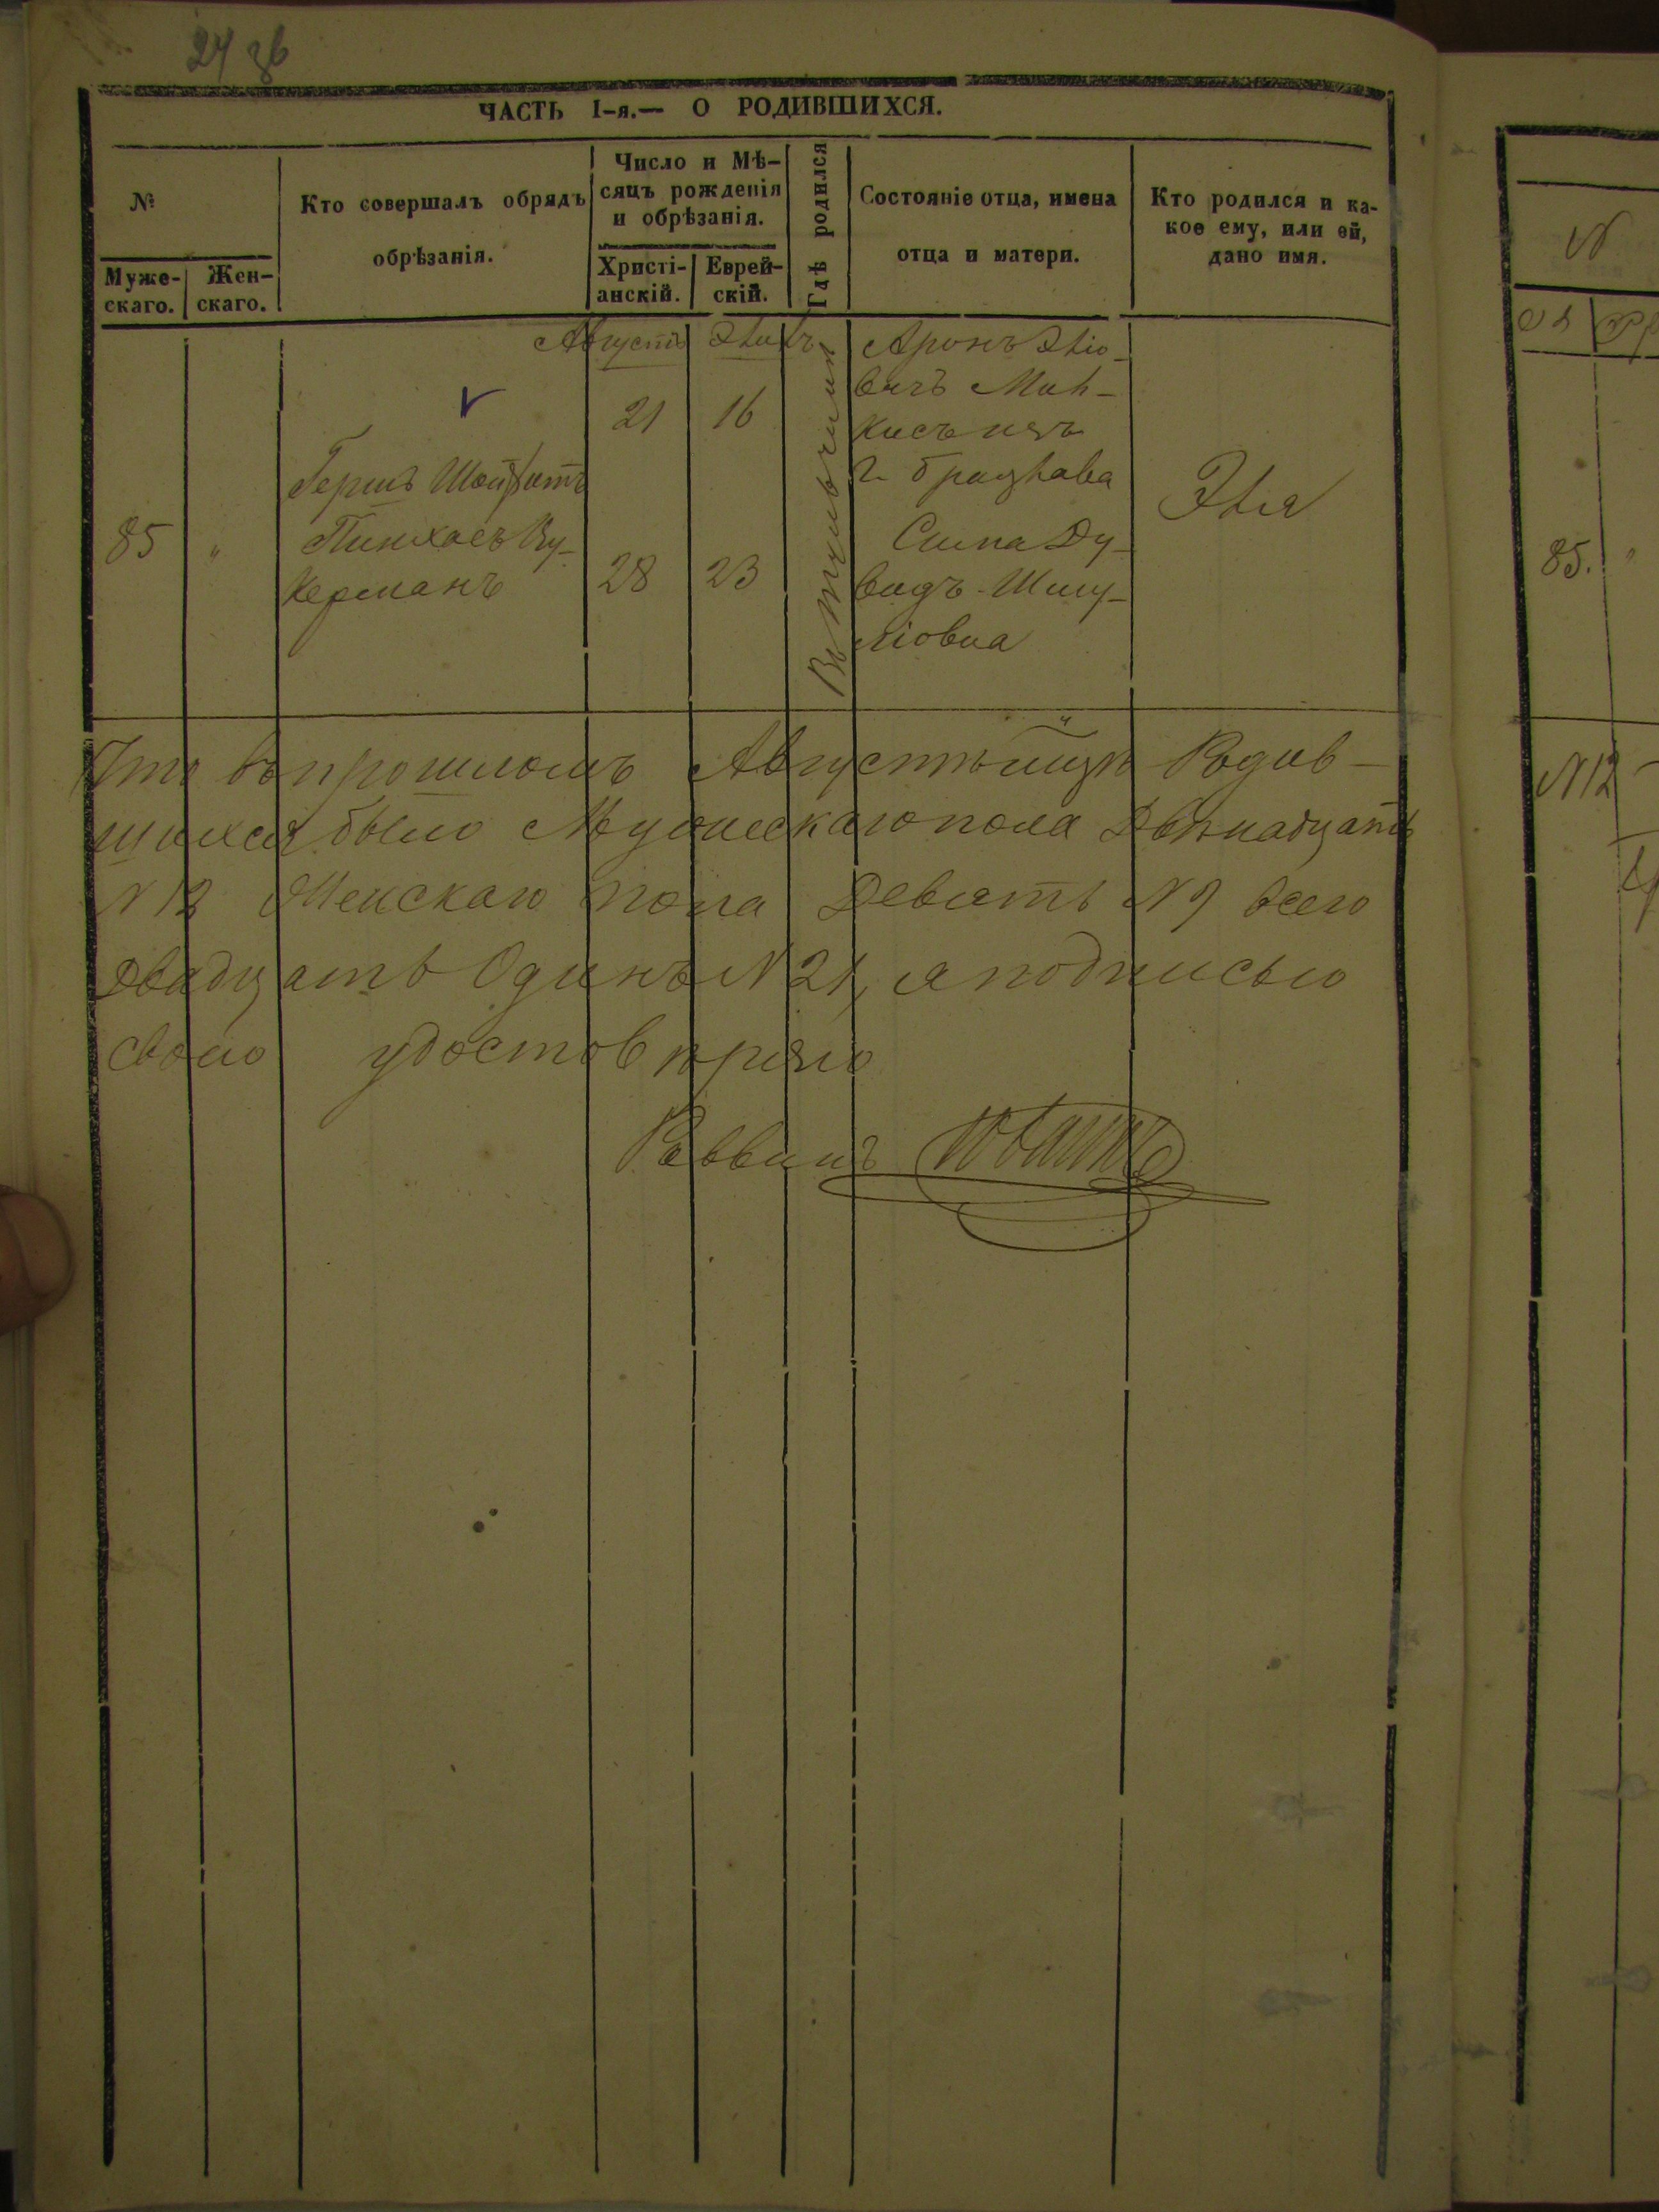 24 зв
ЧАСТЬ I-я.— О РОДИВШИХСЯ.
№
Муже-
скаго.
Жен-
скаго.
Кто совершалъ обрядъ
обрѣзанія.
Число и Мѣ-
сяцъ рожденія
и обрѣзанія.
Христі-
анскій.
Еврей-
скій.
Гдѣ родился
Состояніе отца, имена
отца и матери.
Кто родился и ка-
кое ему, или ей,
дано имя.
Августъ
85
"
Гершъ
Пинхасъ Цу-
керманъ
21
28
16
23
Аронъ Эліо-
вичъ
изъ
г.
Сима Ду-
видъ-Шму-
ліовна
Элія
Что въ прошломъ Августѣ мцѣ Родив-
шихся было Мужескаго пола Двѣнадцать
N 12 Женскаго пола Девять N 9 всего
Двадцать Одинъ N 21, я подписью
свою удостовѣряю
Раввинъ
N
85.
"
N12